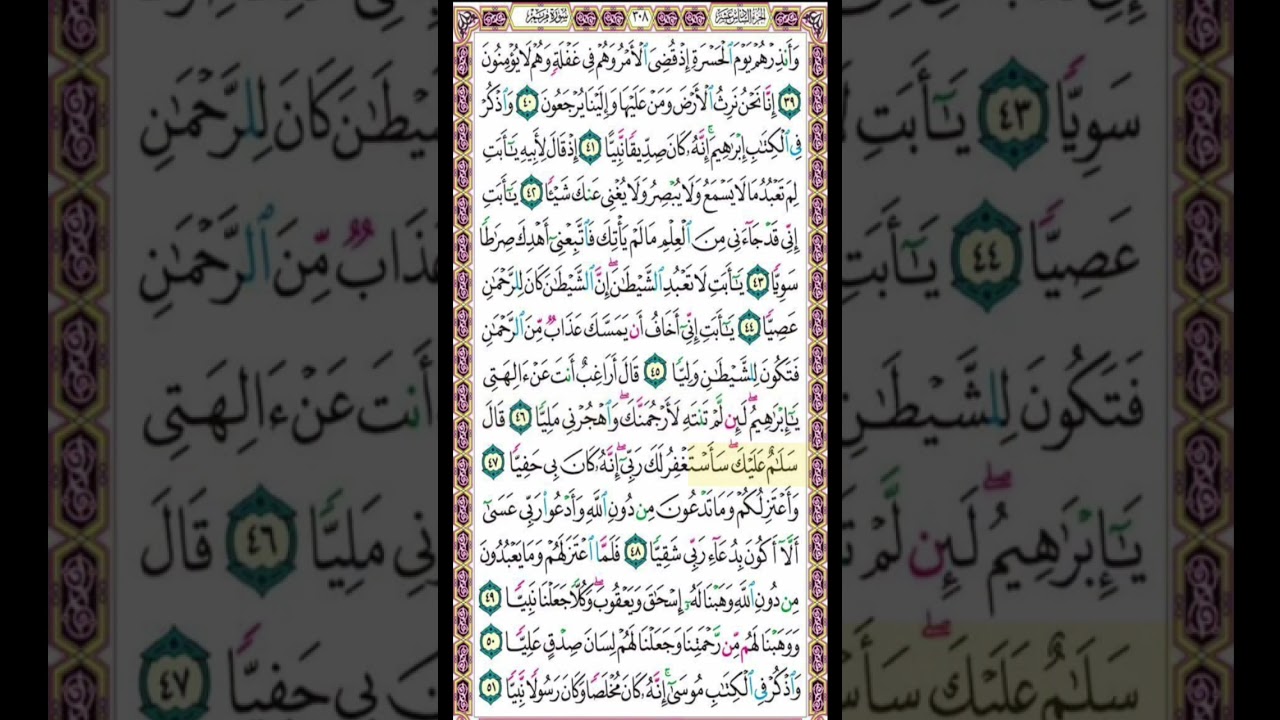 الجزء السادس عشر ٣٠٨ سورة مريم
وَأَنذِرْهُمْ يَوْمَ ٱلْحَسْرَةِ إِذْ قُضِىَ ٱلْأَمْرُ وَهُمْ فِى غَفْلَةٍ وَهُمْ لَا يُؤْمِنُونَ
٣٩ إِنَّا نَحْنُ نَرِثُ ٱلْأَرْضَ وَمَنْ عَلَيْهَا وَإِلَيْنَا يُرْجَعُونَ ٤٠ وَٱذْكُرْ
فِى ٱلْكِتَٰبِ إِبْرَٰهِيمَ ۚ إِنَّهُۥ كَانَ صِدِّيقًا نَّبِيًّا ٤١ إِذْ قَالَ لِأَبِيهِ يَٰٓأَبَتِ
لِمَ تَعْبُدُ مَا لَا يَسْمَعُ وَلَا يُبْصِرُ وَلَا يُغْنِى عَنكَ شَيْـًٔا ٤٢ يَٰٓأَبَتِ
إِنِّى قَدْ جَآءَنِى مِنَ ٱلْعِلْمِ مَا لَمْ يَأْتِكَ فَٱتَّبِعْنِىٓ أَهْدِكَ صِرَٰطًا
سَوِيًّا ٤٣ يَٰٓأَبَتِ لَا تَعْبُدِ ٱلشَّيْطَٰنَ ۖ إِنَّ ٱلشَّيْطَٰنَ كَانَ لِلرَّحْمَٰنِ
عَصِيًّا ٤٤ يَٰٓأَبَتِ إِنِّىٓ أَخَافُ أَن يَمَسَّكَ عَذَابٌ مِّنَ ٱلرَّحْمَٰنِ
فَتَكُونَ لِلشَّيْطَٰنِ وَلِيًّا ٤٥ قَالَ أَرَاغِبٌ أَنتَ عَنْ ءَالِهَتِى
يَٰٓإِبْرَٰهِيمُ ۖ لَئِن لَّمْ تَنتَهِ لَأَرْجُمَنَّكَ ۖ وَٱهْجُرْنِى مَلِيًّا ٤٦ قَالَ
سَلَٰمٌ عَلَيْكَ ۖ سَأَسْتَغْفِرُ لَكَ رَبِّىٓ ۖ إِنَّهُۥ كَانَ بِى حَفِيًّا ٤٧
وَأَعْتَزِلُكُمْ وَمَا تَدْعُونَ مِن دُونِ ٱللَّهِ وَأَدْعُوا۟ رَبِّى عَسَىٰٓ
أَلَّآ أَكُونَ بِدُعَآءِ رَبِّى شَقِيًّا ٤٨ فَلَمَّا ٱعْتَزَلَهُمْ وَمَا يَعْبُدُونَ
مِن دُونِ ٱللَّهِ وَهَبْنَا لَهُۥٓ إِسْحَٰقَ وَيَعْقُوبَ ۖ وَكُلًّا جَعَلْنَا نَبِيًّا ٤٩
وَوَهَبْنَا لَهُم مِّن رَّحْمَتِنَا وَجَعَلْنَا لَهُمْ لِسَانَ صِدْقٍ عَلِيًّا ٥٠
وَٱذْكُرْ فِى ٱلْكِتَٰبِ مُوسَىٰٓ ۚ إِنَّهُۥ كَانَ مُخْلَصًا وَكَانَ رَسُولًا نَّبِيًّا ٥١